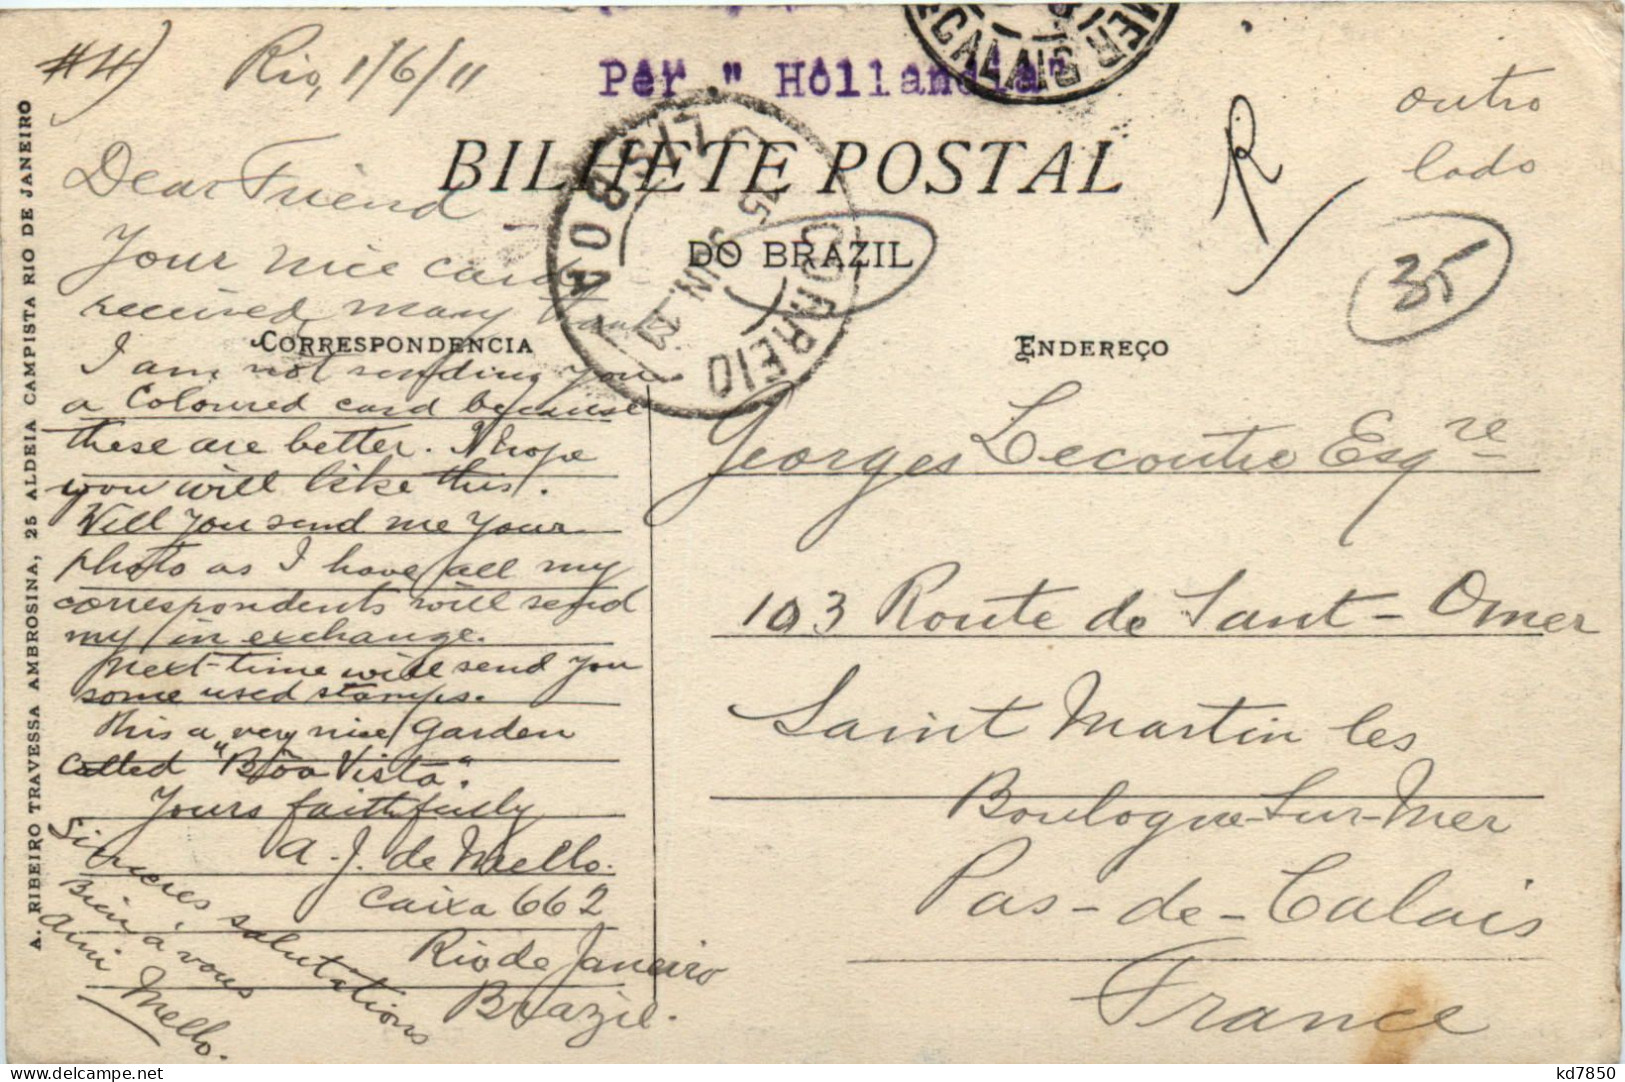 #4) Rio, 1/6/11
Per " Hollandia"
CALAIS
outro
lado
R
35
BILHETE POSTAL
DO BRAZIL
LISBOA
CORREIO
15 JUN.
CORRESPONDENCIA
ENDEREÇO
A. RIBEIRO TRAVESSA AMBROSINA, 25 ALDEIA CAMPISTA RIO DE JANEIRO
Dear Friend
Your nice card
received many
I am not sending you
a Coloured card because
these are better. I hope
you will like this.
Will you send me your
photo as I have all my
correspondents will send
my in exchange.
Next-time will send you
some used stamps.
This a very nice garden
called "Bôa Vista".
Yours faithfully
A. J. de Mello.
Caixa 662
Rio de Janeiro
Brazil.
Sincères salutations
Bien à vous
ami Mello.
Georges Lecoutre Esqre
103 Route de Sant-Omer
Saint Martin les
Boulogne-Sur-Mer
Pas-de-Calais
France
kd7850